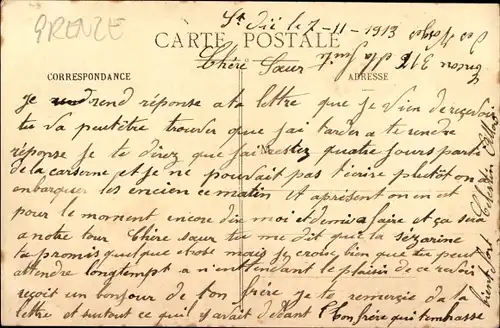 GRENZE
St Dié le 7-11-1913
CARTE POSTALE
Chère Sœur
CORRESPONDANCE
ADRESSE
Je rend réponse a ta lettre que je vien de reçevoir
tu va peutêtre trouver que jai tarder a te rendre
réponse je te direz que jai restez quatre jours parti
de la caserne et je ne pouvait pas t'écrire plutôt on a
embarquer les encien ce matin et aprésent on en et
pour le moment encore dix moi et demi a faire et ça sera
a notre tour Chère sœur tu me dit que la sézarine
ta promis quelque chose mais jy croirez bien que tu peut
attendre longtempt a n'entendant le plaisir de ce revoir
reçoit un bonjour de ton frère je te remercie de ta
lettre et surtout ce qu'il y avait dedant
Ton frère qui t'embrasse
bient fort Célestin